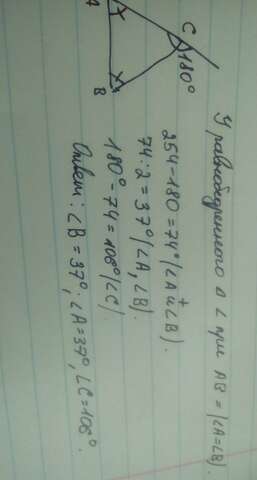 У равнобедренного Δ ∠ при AB = (∠A=∠B).
254-180=74°(∠A и ∠B).
+
74:2=37°(∠A,∠B).
180°-74=106°(∠C)
Ответ: ∠B=37°; ∠A=37°, ∠C=106°.
C
180°
A
B